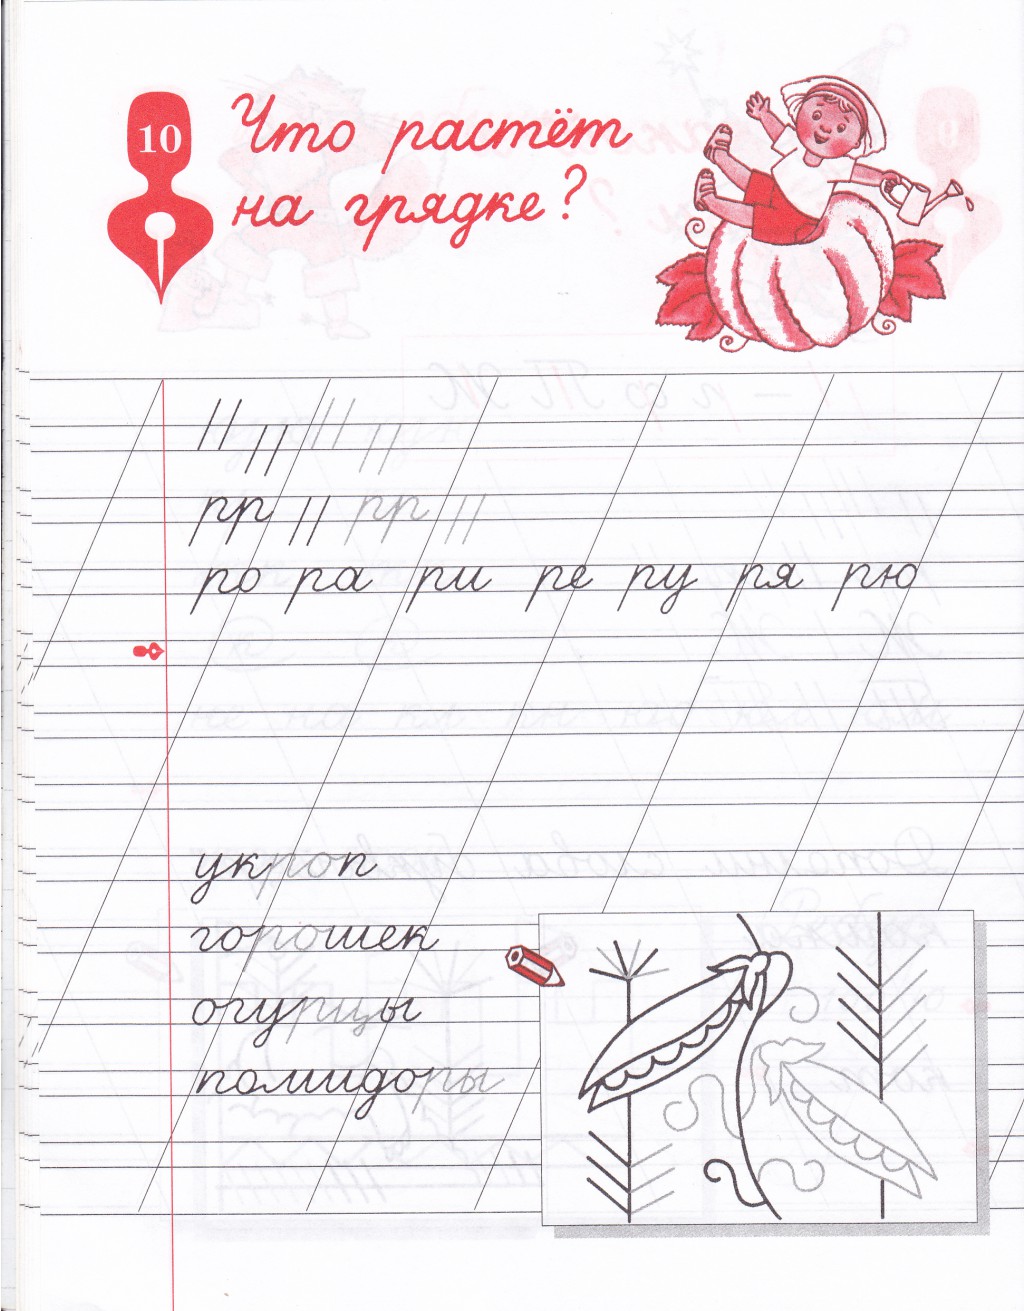 10
Что растёт
на грядке?
рр рр
ро ра ри ре ру ря рю
укроп
горошек
огурцы
помидоры